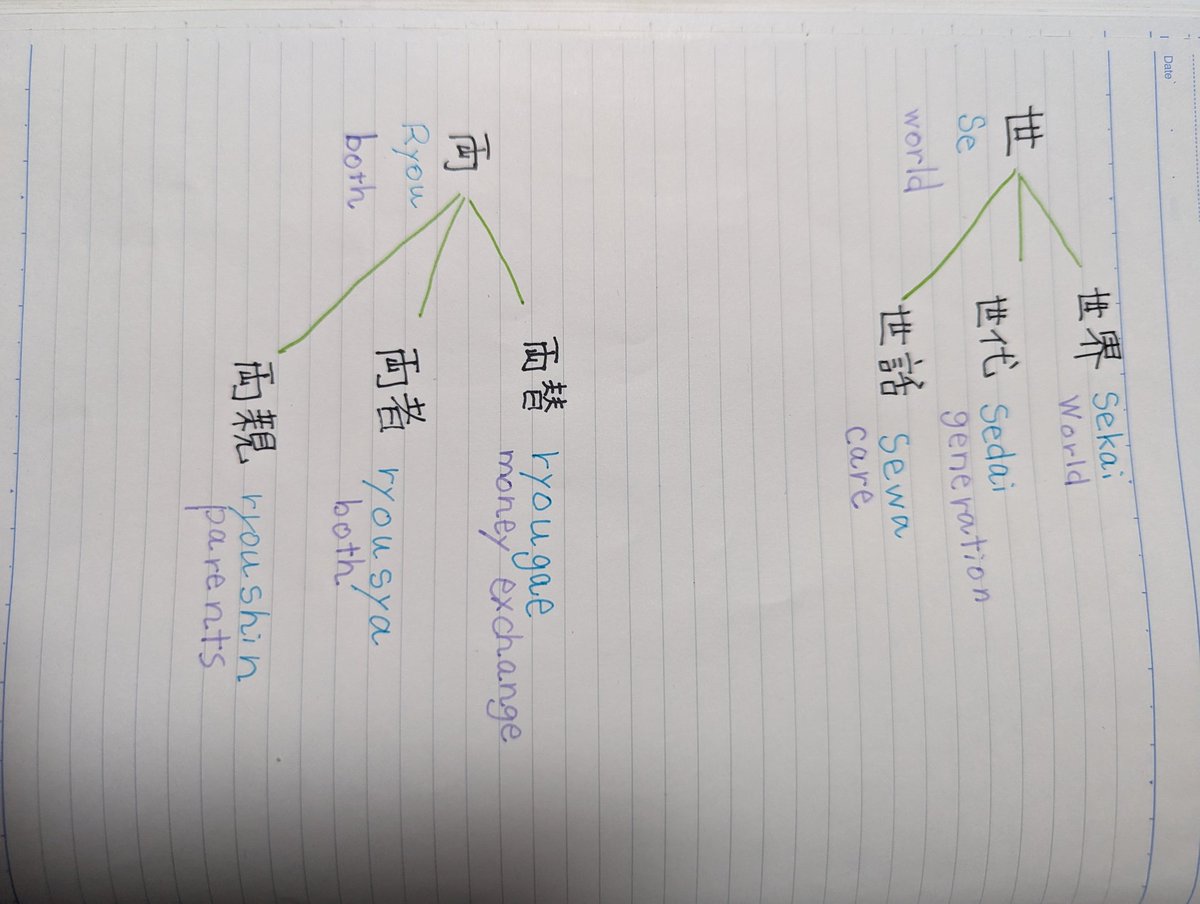 Date
世
Se
world
世界 Sekai
World
世代 Sedai
generation
世話 Sewa
care
両
Ryou
both
両替 ryougae
money exchange
両者 ryousya
both
両親 ryoushin
parents